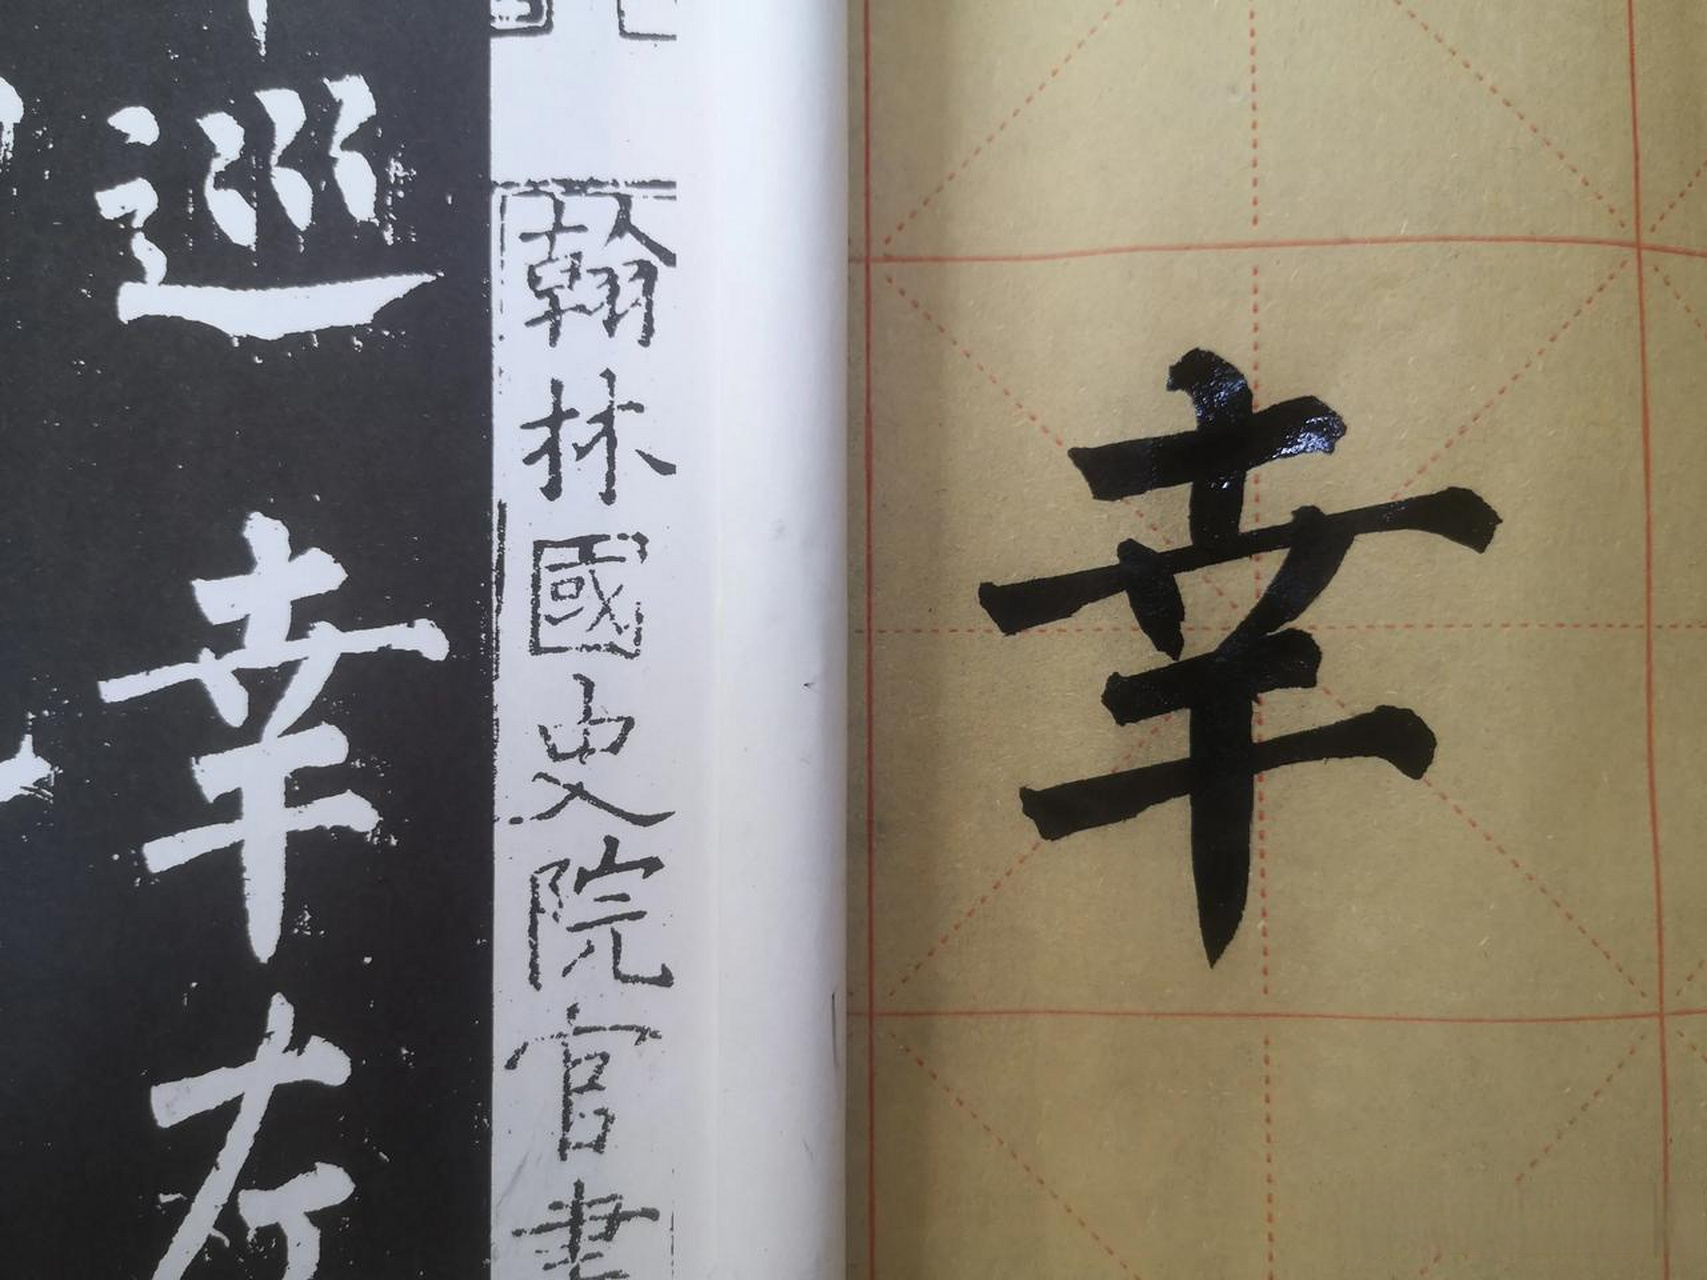 巡幸左
翰林國史院官書
幸